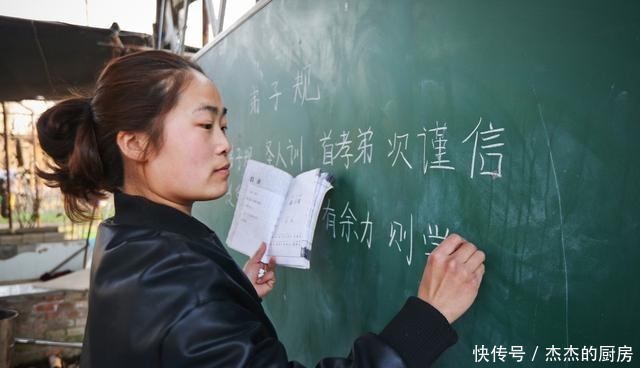 弟子规
圣人训 首孝弟 次谨信
有余力 则学
快传号 / 杰杰的厨房